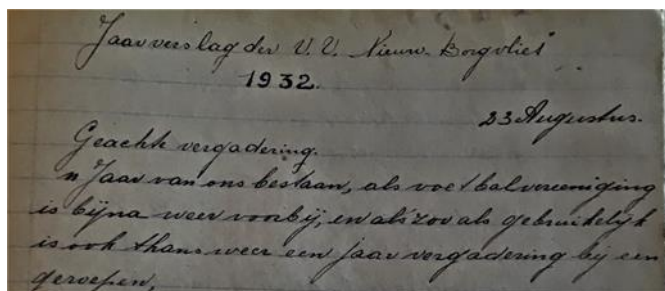 Jaarverslag der V.V. Nieuw-Borgvliet
1932.
23 Augustus.
Geachte vergadering.
'n Jaar van ons bestaan, als voetbalvereeniging
is bijna weer voorbij, en als zoo als gebruikelijk
is ook thans weer een jaarvergadering bij een
geroepen,